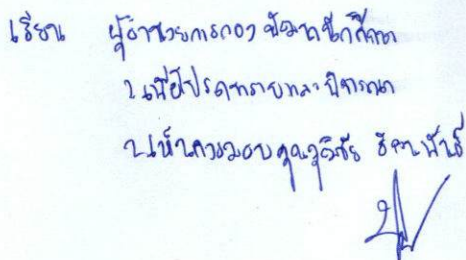 เรียน ผู้อำนวยการกองพัฒนานักศึกษา
1. เพื่อโปรดทราบและพิจารณา
2. เห็นควรมอบคุณวุฒิชัย